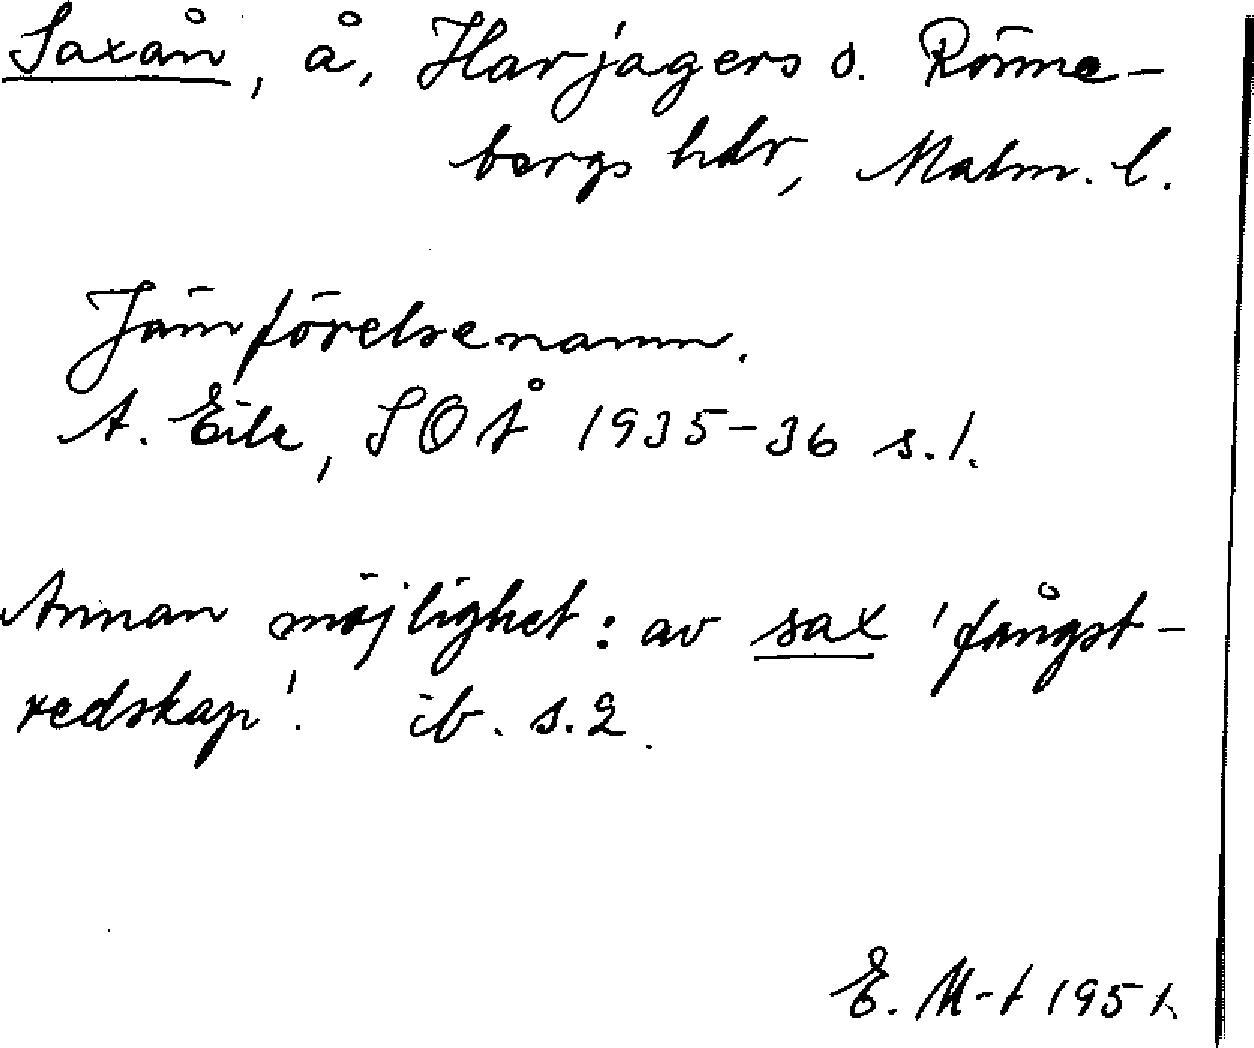 Saxån, å, Harjagers o. Rönne-
bergs hdr, Malm. l.
Jämförelsenamn.
A. Ejle, SOÅ 1935-36 s. 1.
Annan möjlighet: av sax 'fångst-
redskap'. ib. s. 2.
E. M-t 1951.